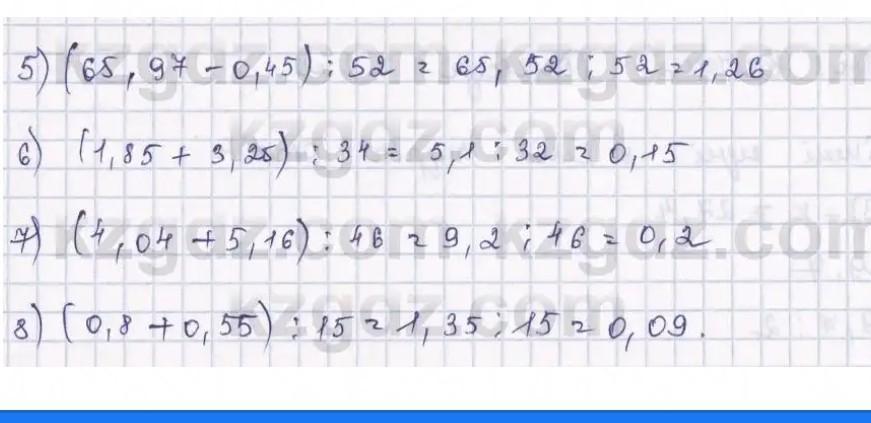 5) (65,97 - 0,45) : 52 = 65,52 : 52 = 1,26
6) (1,85 + 3,25) : 34 = 5,1 : 32 = 0,15
7) (4,04 + 5,16) : 46 = 9,2 : 46 = 0,2
8) (0,8 + 0,55) : 15 = 1,35 : 15 = 0,09.